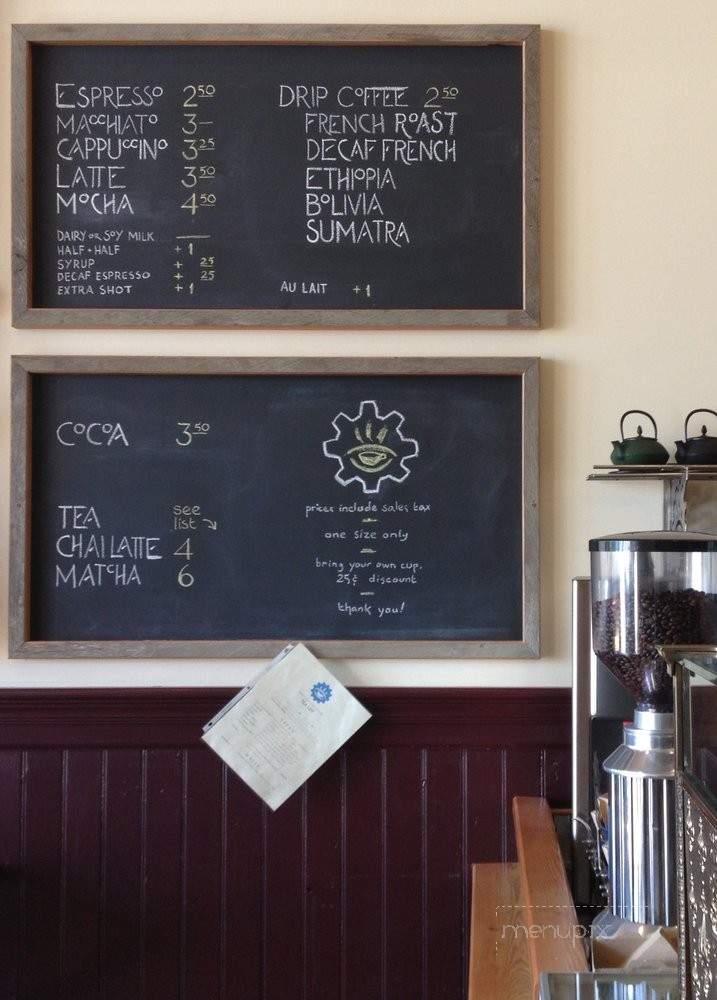 ESPRESSO 2⁵⁰
MACCHIATO 3—
CAPPUCCINO 3²⁵
LATTE 3⁵⁰
MOCHA 4⁵⁰
DAIRY OR SOY MILK —
HALF + HALF + 1
SYRUP + 25
DECAF ESPRESSO + 25
EXTRA SHOT + 1
DRIP COFFEE 2⁵⁰
FRENCH ROAST
DECAF FRENCH
ETHIOPIA
BOLIVIA
SUMATRA
AU LAIT + 1
COCOA 3⁵⁰
TEA see list
CHAI LATTE 4
MATCHA 6
prices include sales tax
one size only
bring your own cup,
25¢ discount
thank you!
menupix